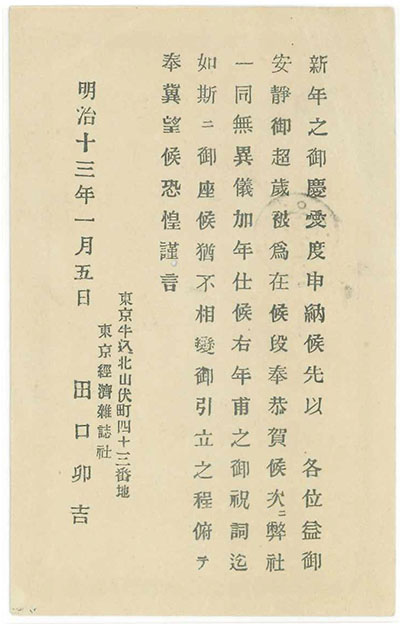 新年之御慶愛度申納候先以　各位益御
安静御超歳被爲在候段奉恭賀候次ニ弊社
一同無異儀加年仕候右年甫之御祝詞迄
如斯ニ御座候猶不相變御引立之程俯テ
奉冀望候恐惶謹言
明治十三年一月五日
東京牛込北山伏町四十三番地
東京經濟雜誌社
田口卯吉